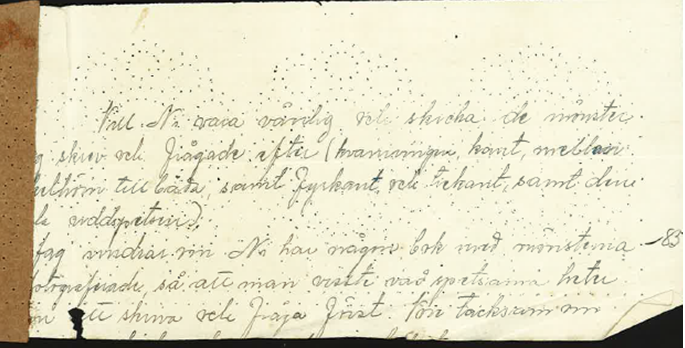 Vill Ni vara vänlig och skicka de mönster
skrev och frågade efter (kvarnvingen, kant, mellan
till båda, samt fyrkant, och trekant, samt den
uddspetsen).
Jag undrar om Ni har någon bok med mönsterna -83
fotograferade, så att man visste vad spetsarna heter
att skriva och fråga först. Vore tacksam om